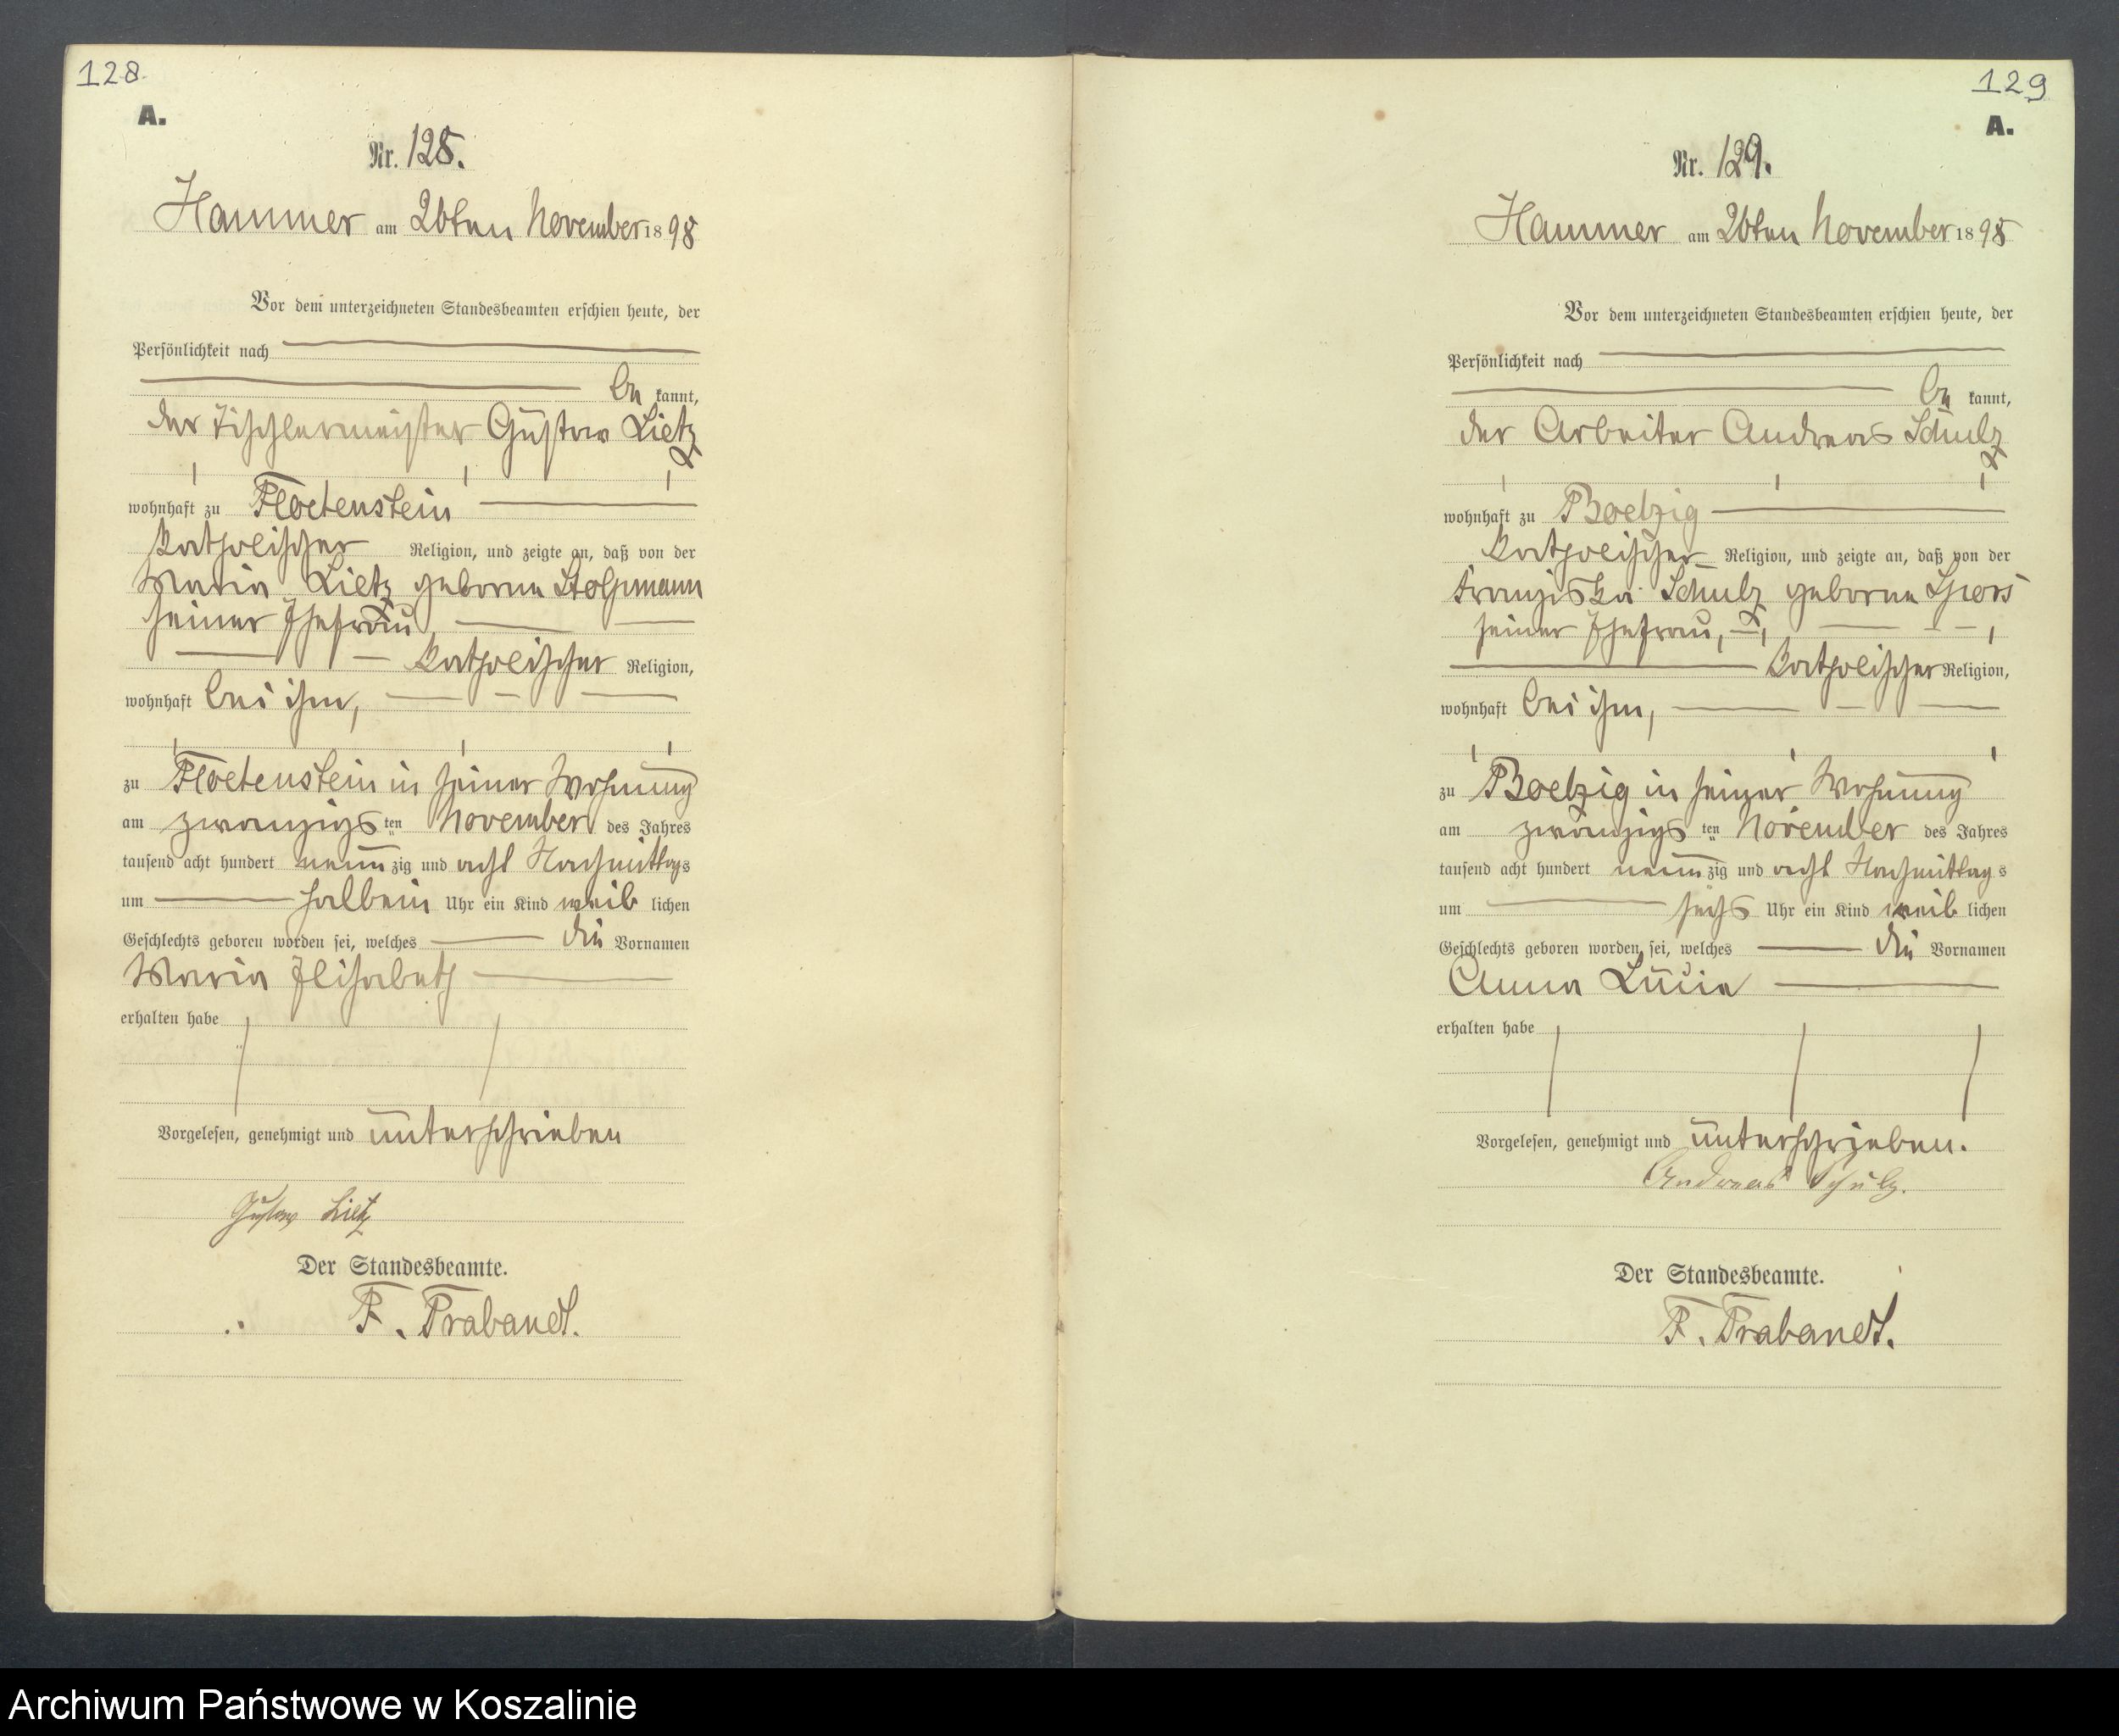 128.
A.
Nr. 128.
Hammer am 26ten November 1898
Vor dem unterzeichneten Standesbeamten erschien heute, der
Persönlichkeit nach
be kannt,
der Tischlermeister Gustav Lietz
wohnhaft zu Floetenstein
katholischer Religion, und zeigte an, daß von der
Maria Lietz geborne Stolpmann
seiner Ehefrau,
katholischer Religion,
wohnhaft bei ihm,
zu Floetenstein in seiner Wohnung
am zwanzigsten November des Jahres
tausend acht hundert neunzig und acht Nachmittags
um halb ein Uhr ein Kind weiblichen
Geschlechts geboren worden sei, welches die Vornamen
Maria Elisabeth
erhalten habe
Vorgelesen, genehmigt und unterschrieben
Gustav Lietz
Der Standesbeamte.
F. Prabandt.
129
A.
Nr. 129.
Hammer am 26ten November 1898
Vor dem unterzeichneten Standesbeamten erschien heute, der
Persönlichkeit nach
be kannt,
der Arbeiter Andreas Schulz
wohnhaft zu Boelzig
katholischer Religion, und zeigte an, daß von der
Franziska Schulz geborne Spors
seiner Ehefrau,
katholischer Religion,
wohnhaft bei ihm,
zu Boelzig in seiner Wohnung
am zwanzigsten November des Jahres
tausend acht hundert neunzig und acht Nachmittags
um sechs Uhr ein Kind weiblichen
Geschlechts geboren worden sei, welches die Vornamen
Anna Lucia
erhalten habe
Vorgelesen, genehmigt und unterschrieben.
Andreas Schulz.
Der Standesbeamte.
F. Prabandt.
Archiwum Państwowe w Koszalinie